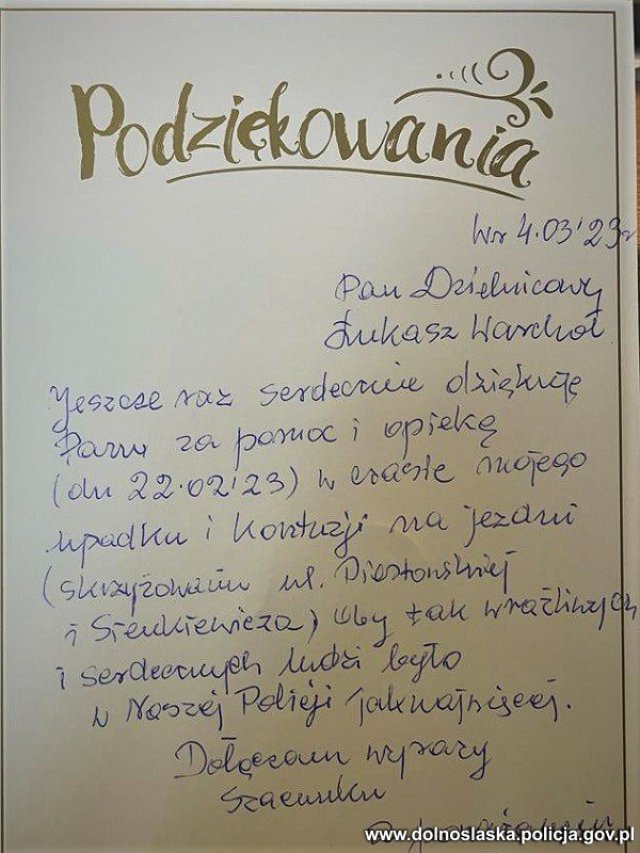 Podziękowania
Wr 4.03'23r
Pan Dzielnicowy
Łukasz Warchoł
Jeszcze raz serdecznie dziękuję
Panu za pomoc i opiekę
(dn 22.02'23) w czasie mojego
upadku i kontuzji na jezdni
(skrzyżowaniu ul. Piastowskiej
i Sienkiewicza) Oby tak wrażliwych
i serdecznych ludzi było
w Naszej Policji jaknajwięcej.
Dołączam wyrazy
Szacunku
www.dolnoslaska.policja.gov.pl